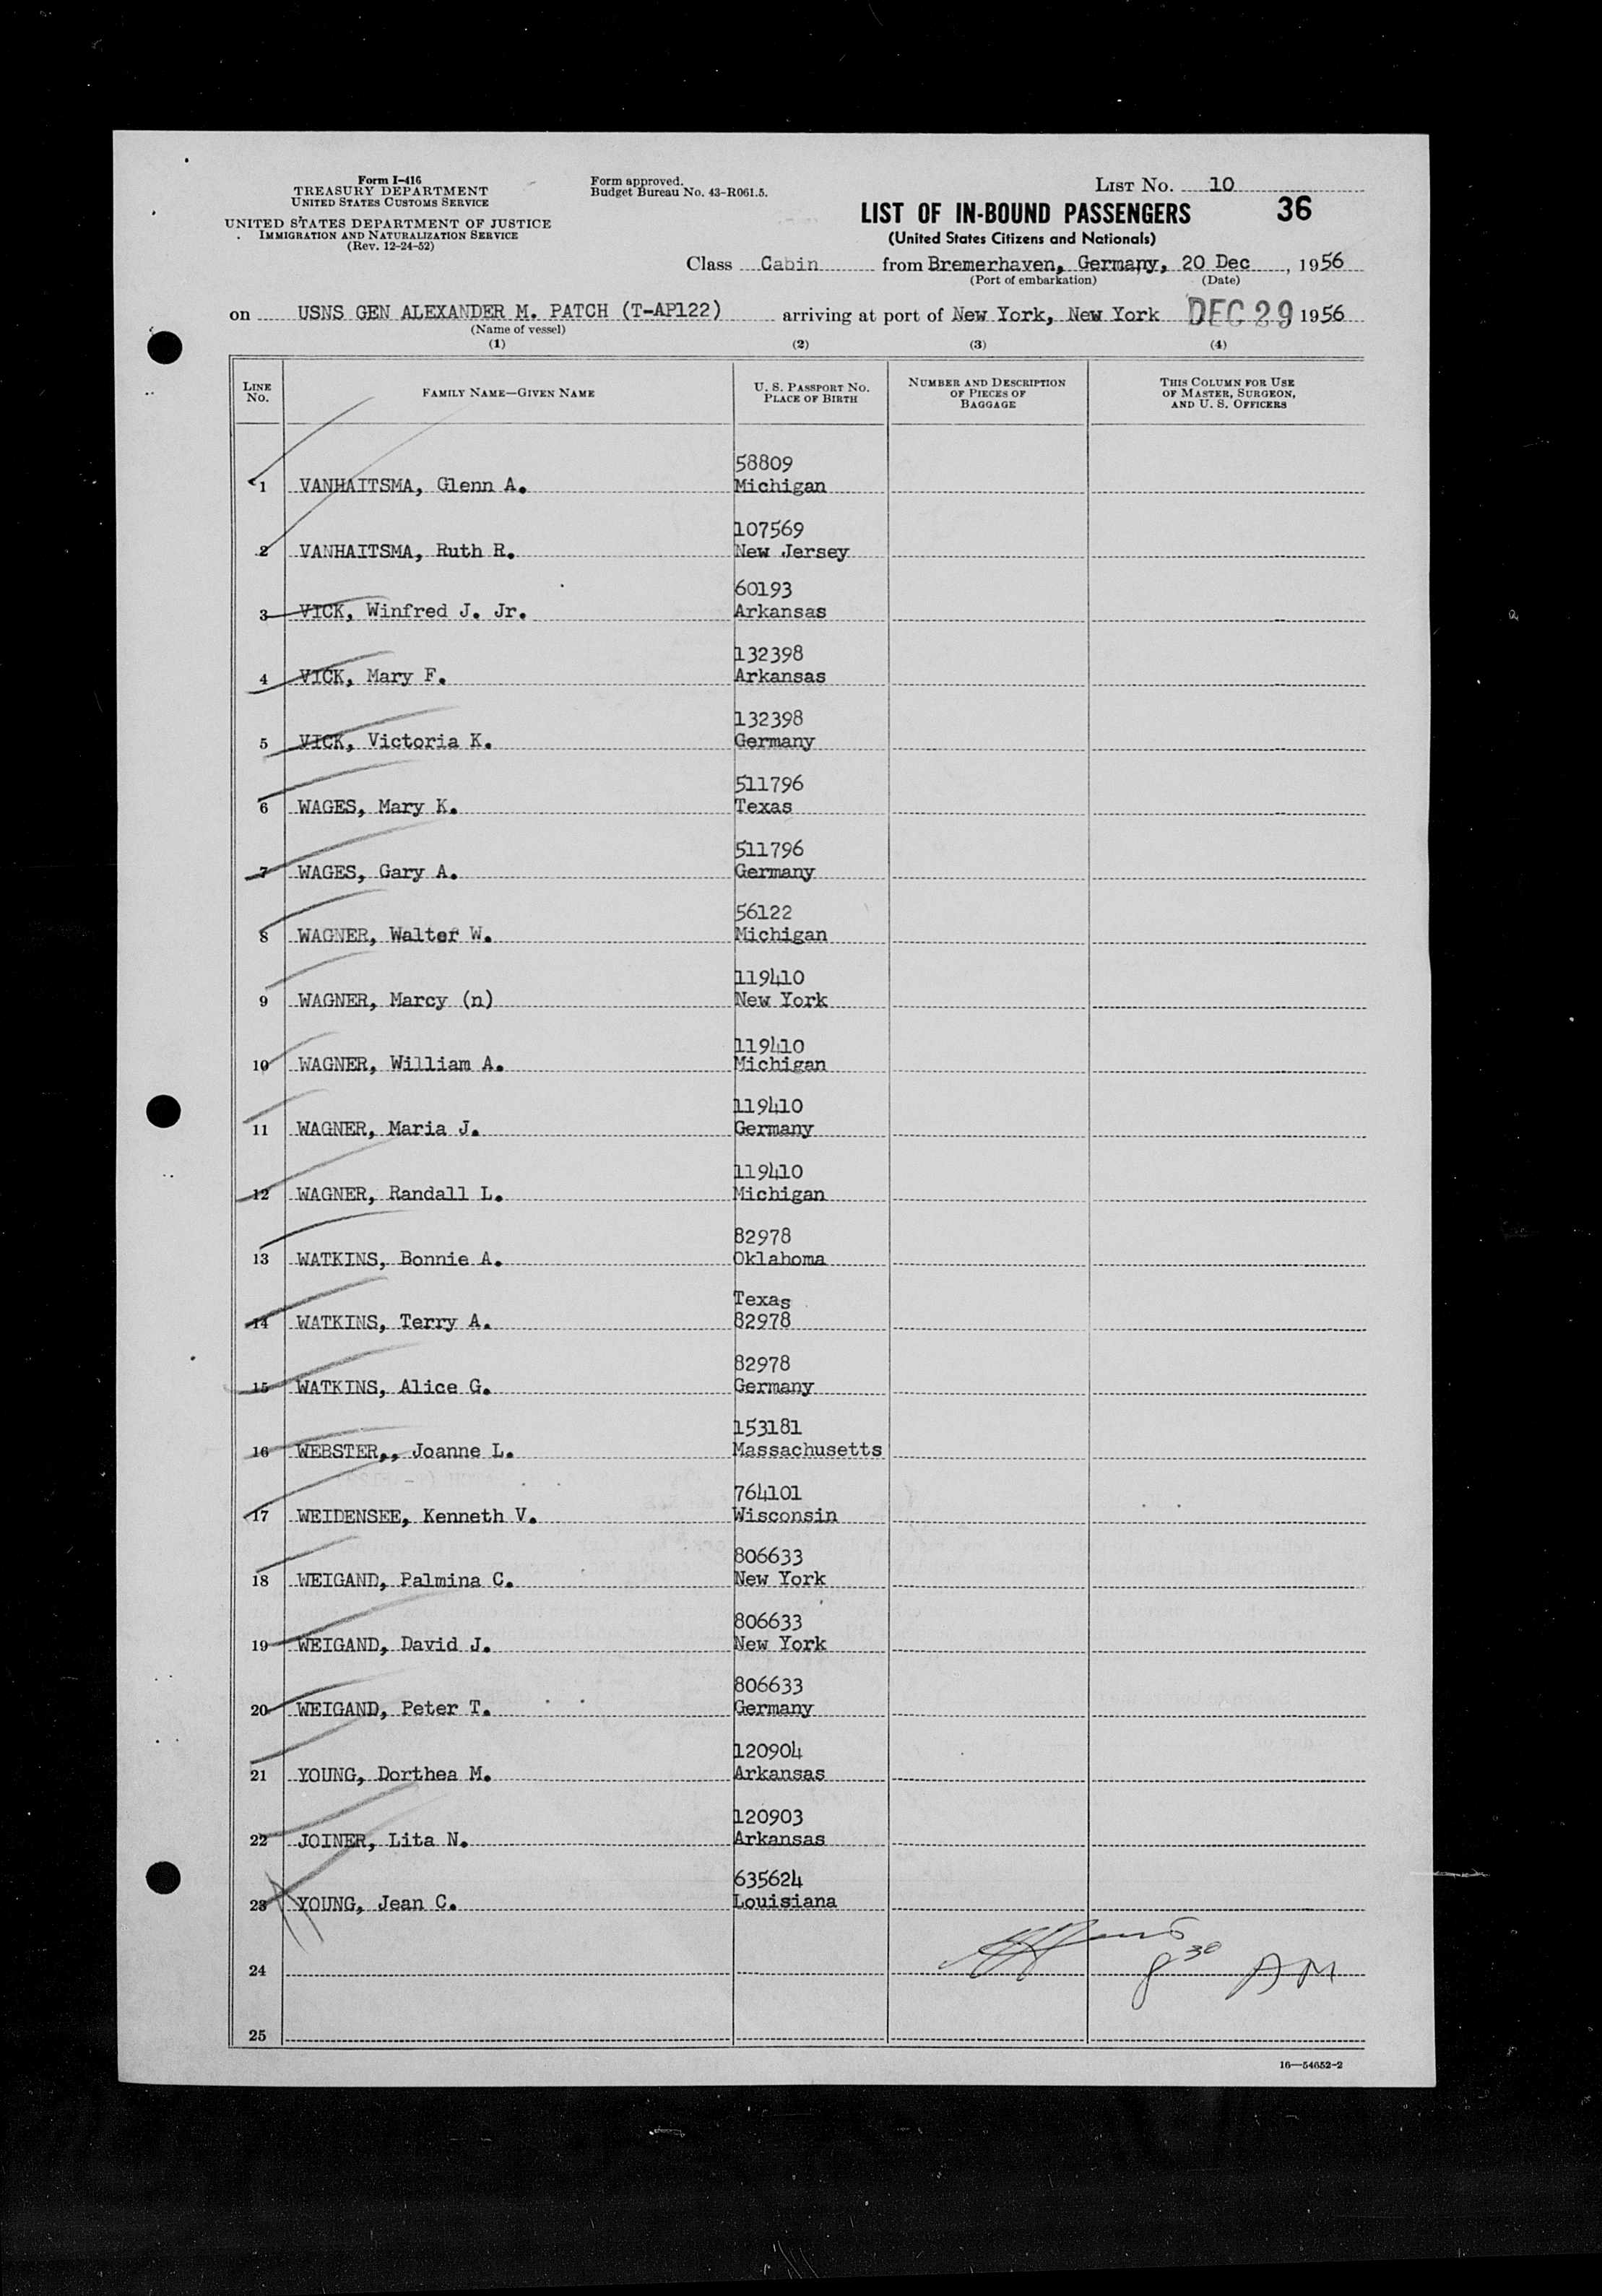 Form I-416
TREASURY DEPARTMENT
UNITED STATES CUSTOMS SERVICE
UNITED STATES DEPARTMENT OF JUSTICE
IMMIGRATION AND NATURALIZATION SERVICE
(Rev. 12-24-52)
Form approved.
Budget Bureau No. 43-R061.5.
LIST NO. 10
LIST OF IN-BOUND PASSENGERS 36
(United States Citizens and Nationals)
Class Cabin from Bremerhaven, Germany, 20 Dec , 1956
(Port of embarkation) (Date)
on USNS GEN ALEXANDER M. PATCH (T-AP122) arriving at port of New York, New York DEC 29 1956
(Name of vessel)
(1) (2) (3) (4)
LINE NO. FAMILY NAME—GIVEN NAME U. S. PASSPORT NO. PLACE OF BIRTH NUMBER AND DESCRIPTION OF PIECES OF BAGGAGE THIS COLUMN FOR USE OF MASTER, SURGEON, AND U. S. OFFICERS
58809
1 VANHAITSMA, Glenn A. Michigan
107569
2 VANHAITSMA, Ruth R. New Jersey
60193
3 VICK, Winfred J. Jr. Arkansas
132398
4 VICK, Mary F. Arkansas
132398
5 VICK, Victoria K. Germany
511796
6 WAGES, Mary K. Texas
511796
7 WAGES, Gary A. Germany
56122
8 WAGNER, Walter W. Michigan
119410
9 WAGNER, Marcy (n) New York
119410
10 WAGNER, William A. Michigan
119410
11 WAGNER, Maria J. Germany
119410
12 WAGNER, Randall L. Michigan
82978
13 WATKINS, Bonnie A. Oklahoma
Texas
14 WATKINS, Terry A. 82978
82978
15 WATKINS, Alice G. Germany
153181
16 WEBSTER,, Joanne L. Massachusetts
764101
17 WEIDENSEE, Kenneth V. Wisconsin
806633
18 WEIGAND, Palmina C. New York
806633
19 WEIGAND, David J. New York
806633
20 WEIGAND, Peter T. Germany
120904
21 YOUNG, Dorthea M. Arkansas
120903
22 JOINER, Lita N. Arkansas
635624
23 YOUNG, Jean C. Louisiana
24 8 30 AM
25
16—54652-2